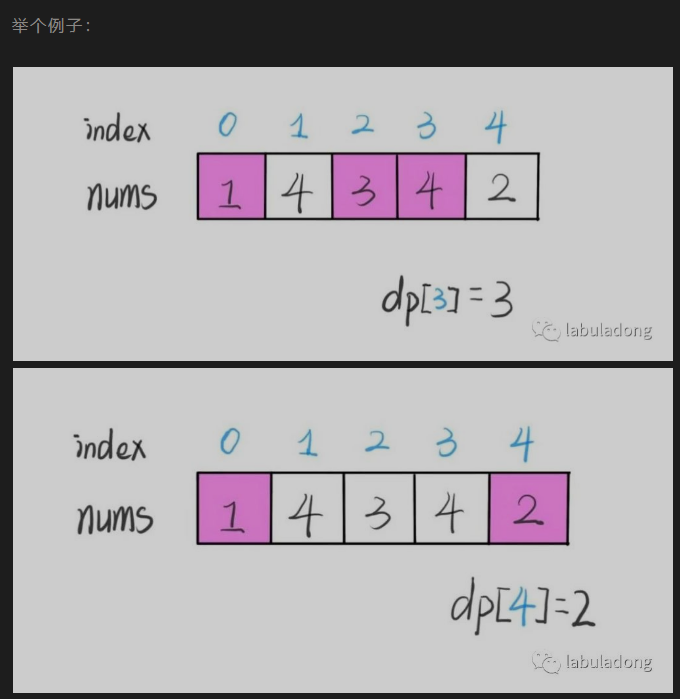 举个例子：
index 0 1 2 3 4
nums 1 4 3 4 2
dp[3]=3
labuladong
index 0 1 2 3 4
nums 1 4 3 4 2
dp[4]=2
labuladong